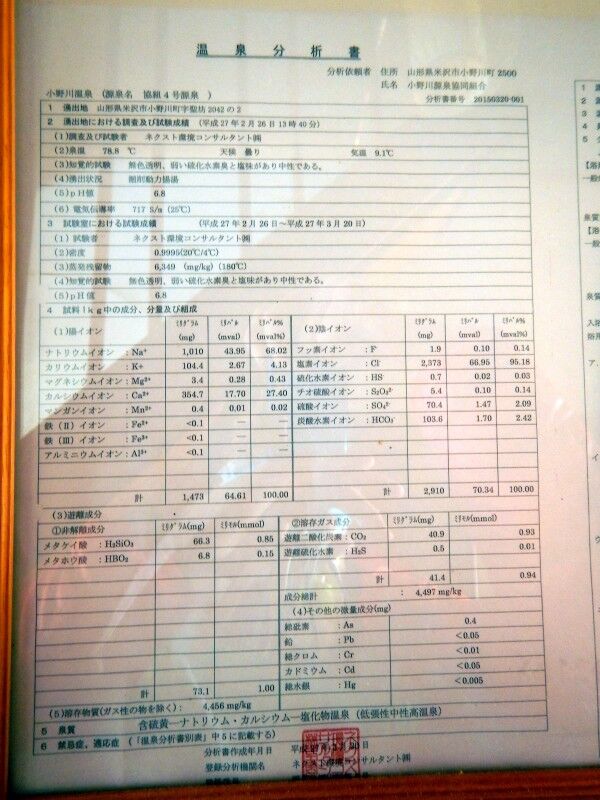 温泉分析書
分析依頼者 住所 山形県米沢市小野川町2500
氏名 小野川源泉協同組合
小野川温泉 (源泉名 協組4号源泉 )
分析書番号 20150320-001
1 湧出地 山形県米沢市小野川町字聖坊2042の2
2 湧出地における調査及び試験成績 (平成27年2月26日13時40分)
(1)調査及び試験者 ネクスト環境コンサルタント㈱
(2)泉温 78.8 ℃ 天候 曇り 気温 9.1℃
(3)知覚的試験 無色透明、弱い硫化水素臭と塩味があり中性である。
(4)湧出状況 掘削動力揚湯
(5)pH値 6.8
(6) 電気伝導率 717 S/m (25℃)
3 試験室における試験成績 (平成27年2月26日〜平成27年3月20日)
(1) 試験者 ネクスト環境コンサルタント㈱
(2)密度 0.9995(20℃/4℃)
(3)蒸発残留物 6,349 (mg/kg) (180℃)
(4)知覚的試験 無色透明、弱い硫化水素臭と塩味があり中性である。
(5)pH値 6.8
4 試料1kg中の成分、分量及び組成
(1)陽イオン ミリグラム(mg) ミリバル(mval) ミリバル%(mval%)
ナトリウムイオン : Na⁺ 1,010 43.95 68.02
カリウムイオン : K+ 104.4 2.67 4.13
マグネシウムイオン : Mg²⁺ 3.4 0.28 0.43
カルシウムイオン : Ca²⁺ 354.7 17.70 27.40
マンガンイオン : Mn²⁺ 0.4 0.01 0.02
鉄(Ⅱ)イオン : Fe²⁺ <0.1 — —
鉄(Ⅲ)イオン : Fe³⁺ <0.1 — —
アルミニウムイオン : Al³⁺ <0.1 — —
計 1,473 64.61 100.00
(2)陰イオン ミリグラム(mg) ミリバル(mval) ミリバル%(mval%)
フッ素イオン : F⁻ 1.9 0.10 0.14
塩素イオン : Cl⁻ 2,373 66.95 95.18
硫化水素イオン : HS 0.7 0.02 0.03
チオ硫酸イオン : S₂O₃²⁻ 5.4 0.10 0.14
硫酸イオン : SO₄²⁻ 70.4 1.47 2.09
炭酸水素イオン : HCO₃⁻ 103.6 1.70 2.42
計 2,910 70.34 100.00
(3)遊離成分
①非解離成分 ミリグラム(mg) ミリモル(mmol)
メタケイ酸 : H₂SiO₃ 66.3 0.85
メタホウ酸 : HBO₂ 6.8 0.15
計 73.1 1.00
②溶存ガス成分 ミリグラム(mg) ミリモル(mmol)
遊離二酸化炭素 : CO₂ 40.9 0.93
遊離硫化水素 : H₂S 0.5 0.01
計 41.4 0.94
成分総計 : 4,497 mg/kg
(4)その他の微量成分(mg)
総砒素 : As 0.4
鉛 : Pb <0.05
総クロム : Cr <0.01
カドミウム : Cd <0.05
総水銀 : Hg <0.005
(5)溶存物質(ガス性の物を除く) : 4,456 mg/kg
5 泉質 含硫黄—ナトリウム・カルシウム—塩化物温泉 (低張性中性高温泉)
6 禁忌症、適応症 (「温泉分析書別表」中5に記載する)
分析書作成年月日 平成27年3月20日
登録分析機関名 ネクスト環境コンサルタント㈱